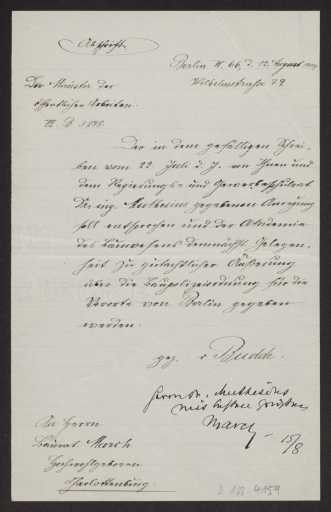 Abschrift.
Berlin W. 66, d. 12. August
Wilhelmstraße 79
Der Minister der
öffentlichen Arbeiten.
III. B
Der in dem gefälligen Schrei-
ben vom 22 Juli d. J. von Ihnen und
dem Regierungs- und Gewerbeschulrat
Dr. ing. Muthesius gegebenen Anregung
soll entsprochen und der Akademie
des Bauwesens demnächst Gelegen-
heit zu gutachtlicher Äußerung
über die Baupolizeiordnung für die
Vororte von Berlin gegeben
werden.
gez. v Budde.
Herrn Dr. Muthesius
mit besten Grüßen
March
15/8
An Herrn
Baurat March
Hochwohlgeboren
Charlottenburg.